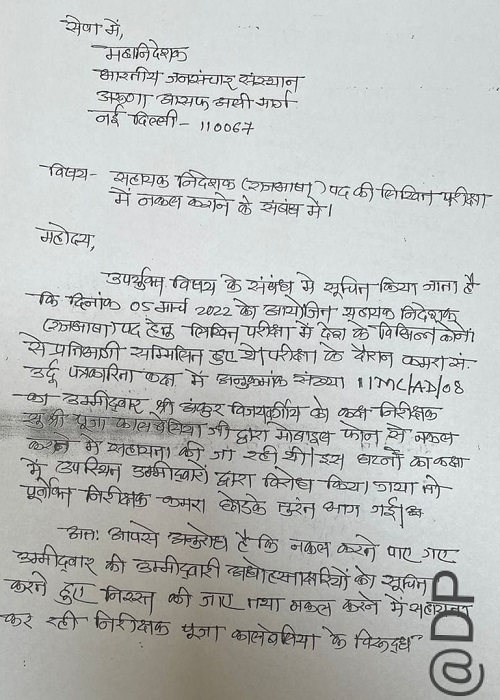 सेवा में,
महानिदेशक
भारतीय जनसंचार संस्थान
अरुणा आसफ अली मार्ग
नई दिल्ली - 110067
विषय - सहायक निदेशक (राजभाषा) पद की लिखित परीक्षा
में नकल कराने के संबंध में।
महोदय,
उपर्युक्त विषय के संबंध में सूचित किया जाता है
कि दिनांक 05 मार्च 2022 को आयोजित सहायक निदेशक
(राजभाषा) पद हेतु लिखित परीक्षा में देश के विभिन्न कोनों
से प्रतिभागी सम्मिलित हुए थे। परीक्षा के दौरान कमरा सं.
उर्दू पत्रकारिता कक्ष में अनुक्रमांक संख्या IIMC/AD/08
का उम्मीदवार श्री शंकुर विजयवर्गीय को कक्ष निरीक्षक
सुश्री पूजा कालबेलिया जी द्वारा मोबाइल फोन से नकल
कराने में सहायता की जा रही थी। इस घटना का कक्षा
में उपस्थित उम्मीदवारों द्वारा विरोध किया गया तो
पूर्वोक्त निरीक्षक कमरा छोड़के तुरंत भाग गई।
अतः आपसे अनुरोध है कि नकल करने पाए गए
उम्मीदवार की उम्मीदवारी अधोहस्ताक्षरियों को सूचित
करते हुए निरस्त की जाए तथा नकल करने में सहायता
कर रही निरीक्षक पूजा कालबेलिया के विरुद्ध
@DP